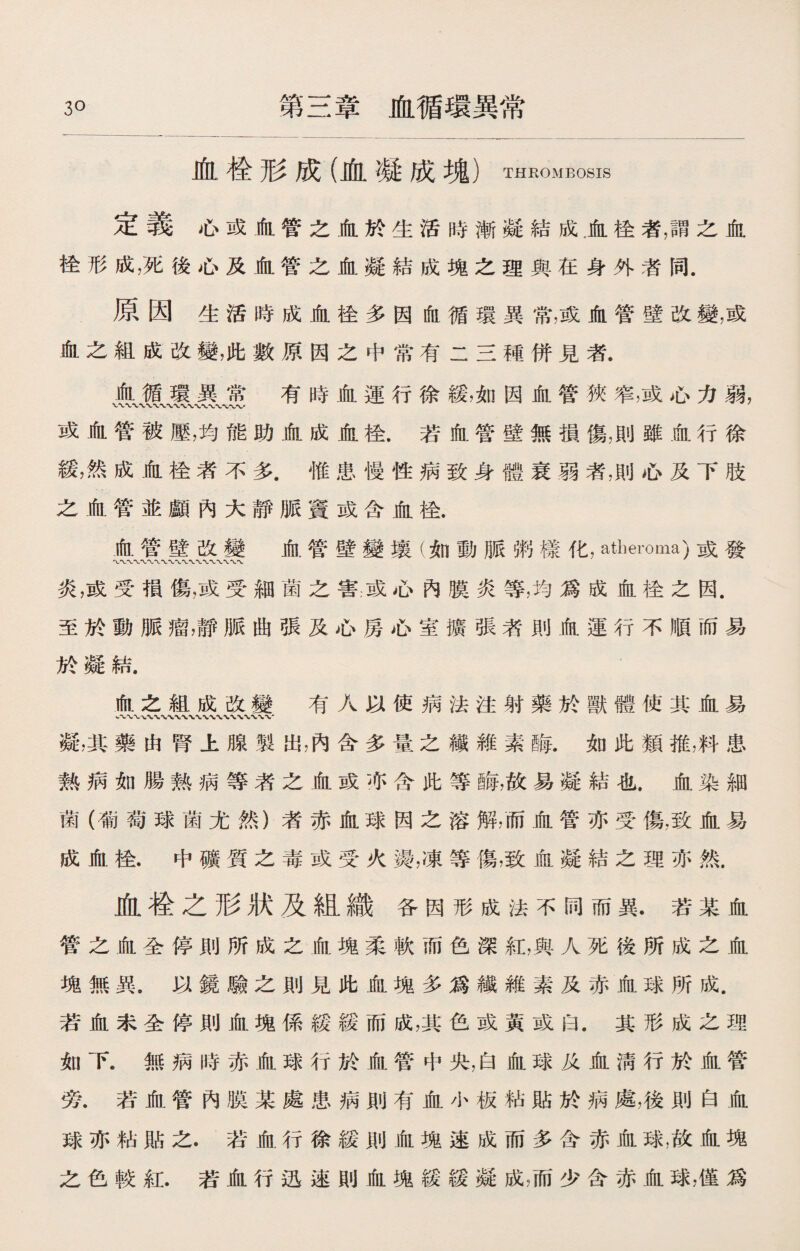 30 第三章 血循環異常
血栓形成(血凝成塊) THROMBOSIS
定義 心或血管之血於生活時漸凝結成血栓者,謂之血
栓形成,死後心及血管之血凝結成塊之理與在身外者同.
原因 生活時成血栓多因血循環異常,或血管壁改變,或
血之組成改變,此數原因之中常有二三種併見者.
血循環異常 有時血運行徐緩,如因血管狹窄,或心力弱,
或血管被壓,均能助血成血栓. 若血管壁無損傷,則雖血行徐
緩,然成血栓者不多. 惟患慢性病致身體衰弱者,則心及下肢
之血管並顱內大靜脈竇或含血栓.
血管壁改變 血管壁變壞(如動脈粥樣化, atheroma)或發
炎,或受損傷,或受細菌之害,或心內膜炎等,均爲成血栓之因.
至於動脈瘤,靜脈曲張及心房心室擴張者則血運行不順而易
於凝結.
血之組成改變 有人以使病法注射藥於獸體使其血易
凝,其藥由腎上腺製出,內含多量之纖維素酶. 如此類推,料患
熱病如腸熱病等者之血或亦含此等酶,故易凝結也. 血染細
菌(葡萄球菌尤然)者赤血球因之溶解,而血管亦受傷,致血易
成血栓. 中礦質之毒或受火燙,凍等傷,致血凝結之理亦然.
血栓之形狀及組織 各因形成法不同而異. 若某血
管之血全停則所成之血塊柔軟而色深紅,與人死後所成之血
塊無異. 以鏡驗之則見此血塊多爲纖維素及赤血球所成.
若血未全停則血塊係緩緩而成,其色或黃或白. 其形成之理
如下. 無病時赤血球行於血管中央,白血球及血淸行於血管
旁. 若血管內膜某處患病則有血小板粘貼於病處,後則白血
球亦粘貼之. 若血行徐緩則血塊速成而多含赤血球,故血塊
之色較紅. 若血行迅速則血塊緩緩凝成,而少含赤血球,僅爲